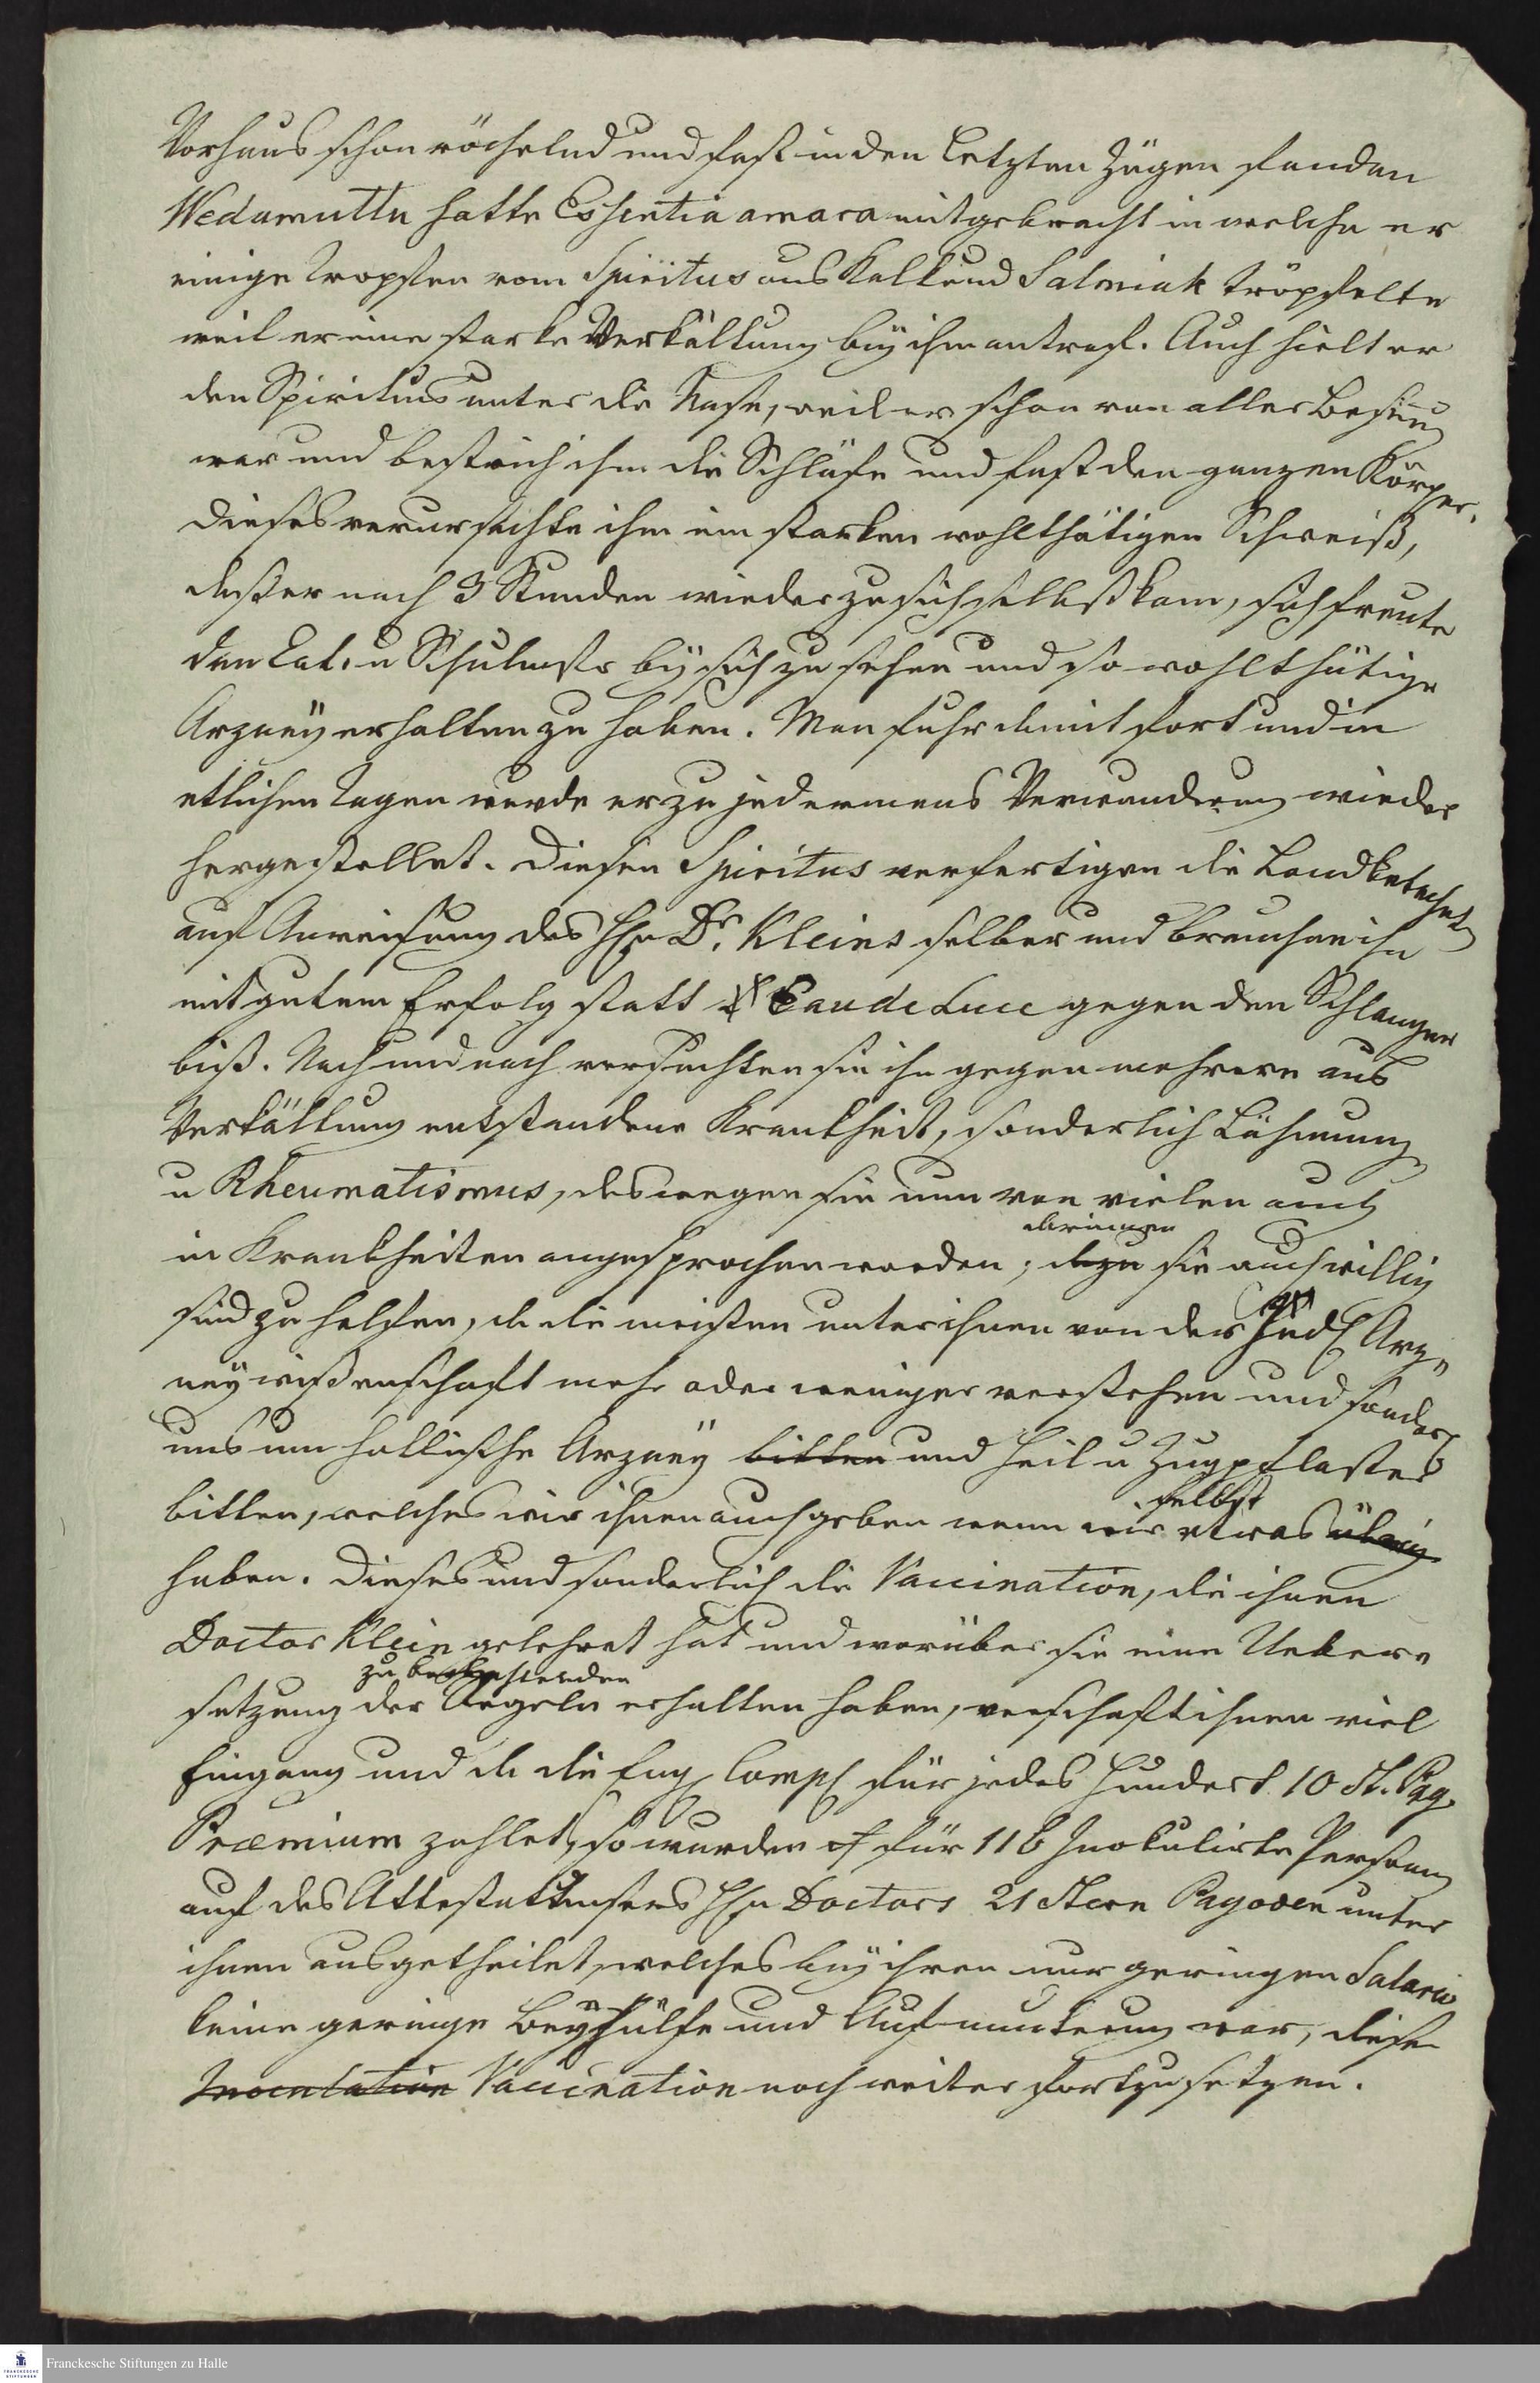 Vorhaus schon röchelnd und fast in den letzten Zügen fanden
Wedamuttu hatte Essentia amara mitgebracht in welche er
einige Tropfen vom Spiritus aus Kalk und Salmiak tröpfelte
weil er eine starke Verkältung bey ihm antraf. Auch hielt er
den Spiritus unter die Nase, weil er schon von aller Besinnung
war und bestrich ihm die Schläfe und fast den ganzen Körper.
Dieses verursachte ihm ein starken wohlthätigen Schweiß,
daß er nach 3 Stunden wieder zu sich selbst kam, sich freute
den Cat. u Schulmstr bey sich zu sehen und so wohlthätige
Arzney erhalten zu haben. Man fuhr damit fort und in
etlichen Tagen wurde er zu jedermans Verwunderung wieder
hergestellet. Diesen Spiritus verfertigen die Landkatecheten
auf Anweisung des Hn Dr. Kleins selber und brauchen ihn
mit gutem Erfolg statt Eau de Luce gegen den Schlangen
biß. Nach und nach versuchten sie ihn gegen mehrere aus
Verkältung entstandene Krankheit, sonderlich Lähmung
u Rheumatismus, deswegen sie nun von vielen auch
darinnen
in Krankheiten angesprochen worden; dazu sie auch willig
sind zu helfen, da die meisten unter ihnen von der Ind. Arz„
neywißenschaft mehr oder weniger verstehen und sonders
uns um hallische Arzney bitten und Heil u Zugpflaster
selbst
bitten, welches wir ihnen auch geben wenn wir etwas übrig
haben. Dieses und sonderlich die Vaccination, die ihnen
Doctor Klein gelehret hat und worüber sie eine Ueber„
zu beobachtenden
setzung der Regeln erhalten haben, verschaft ihnen viel
Eingang und da die Eng. Comp. für jedes Hundert 10 St. Pag.
Præmium zahlet, so wurden für 116 Inokulirte Personen
auf des Attestat unsers Hn Doctors 21 Stern Pagoden unter
ihnen ausgetheilet, welches bey ihren nur geringen Salario
keine geringe Beyhülfe und Aufmunterung war, diese
Inoculation Vaccination noch weiter fortzusetzen.
Franckesche Stiftungen zu Halle
FRANCKESCHE STIFTUNGEN